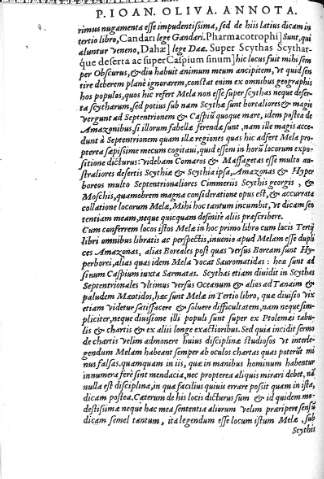 P. IOAN. OLIVA. ANNOTA.
rimus nugamenta esse impudentissima, sed de hiis latius dicam in
tertio libro, Candari lege Gandari. Pharmacotrophi] Sunt, qui
aluntur veneno, Dahæ] lege Daæ. Super Scythas Scythar-
que deserta ac super Caspium sinum] hic locus fuit mihi sem
per Obscurus, & diu habuit animum meum ancipitem, vt quid sen
tire deberem planè ignorarem, constat enim ex omnibus geographis
hos populos, quos hic refert Mela non esse super scythas neque deser
ta scytharum, sed potius sub nam Scythæ sunt borealiores & magis
vergunt ad Septentrionem & Caspiũ quoque mare, idem postea de
Amazonibus, si illorum fabellæ ferendæ sunt, nam ille magis acce
dunt à Septentrionem quàm illæ regiones quas hic adfert Mela pro-
pterea sæpissime mecum cogitaui, quid essem in horũ locorum ex-
positione dicturus: videbam Comaros & Massagetas esse multo au
straliores desertis Scythiæ & Scythia ipsa, Amazonas & Hyper
boreos multo Septentrionaliores Commeriis Scythis georgis, &
Moschis, quamobrem magna cogitatione opus est, & accurata
collatione locorum Melæ, Mihi hoc tantum incumbit, vt dicam sen
tentiam meam, neque quicquam definire aliis præscribere.
Cum conferrem locos istos Melæ in hoc primo libro cum locis Tertij
libri omnibus libratis ac perspectis, inuenio apud Melam esse dupli
ces Amazonas, alias Boreales post quas versus Boream sunt Hy
perborei, alias quas idem Mela vocat Sauromatidas: hæ sunt ad
sinum Caspium iuxta Sarmatas. Scythas etiam diuidit in Scythas
Septentrionales vltimus versus Oceanum & alios ad Tanaim &
paludem Mæotidos, hæc sunt Melæ in Tertio libro, quæ diuisio vix
etiam videtur satisfacere & soluere difficultatem, nam neque sim-
pliciter, neque diuisione illi populi sunt super ex Ptolemæi tabu-
lis & chartis & ex aliis longe exactioribus. Sed quia incidit sermo
de chartis velim admonere huius disciplinæ studiosos vt interle-
gendum Melam habeant semper ab oculos chartas quas poterũt mi
nus falsas. quamquam in iis, quæ in manibus hominum habentur
innumera ferè sint mendacia, nec propterea aliquis mirari debet, nã
nulla est disciplina, in qua facilius quiuis errare possit quam in ista,
dicam postea. Cæterum de his locis dicturus sum & id quidem mo-
destissima neque hac mea sententia aliorum velim præripere sensũ
dicam semel tantum, ita legendum esse locum istum Melæ, sub
Scythis